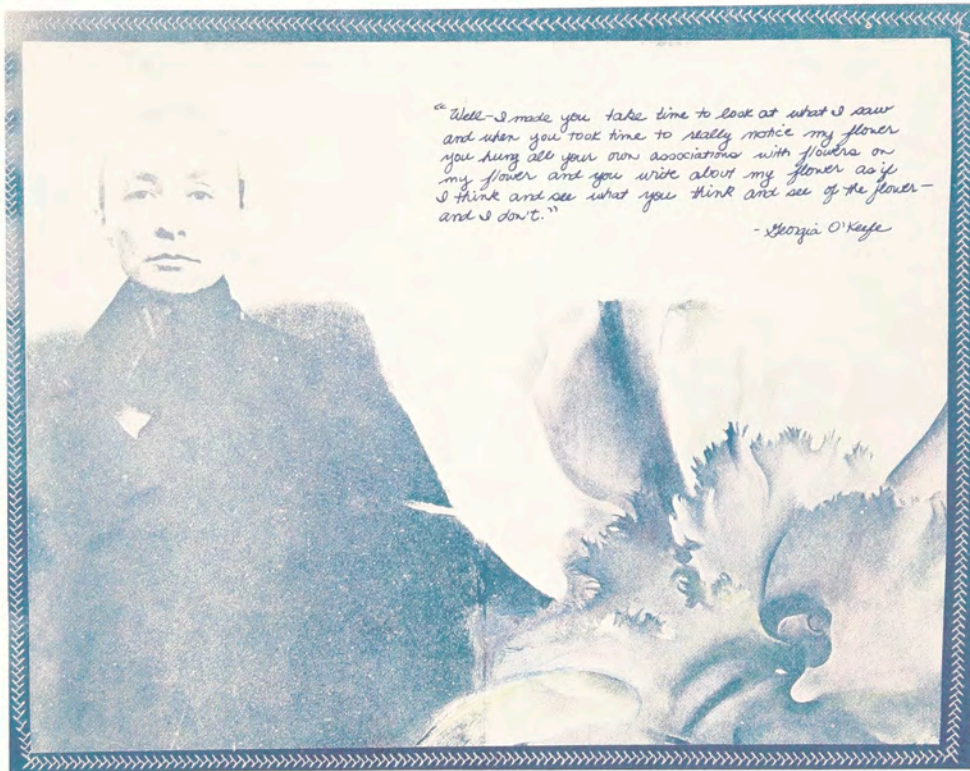 "Well-I made you take time to look at what I saw
and when you took time to really notice my flower
you hung all your own associations with flowers on
my flower and you write about my flower as if
I think and see what you think and see of the flower—
and I don't."
- Georgia O'Keefe